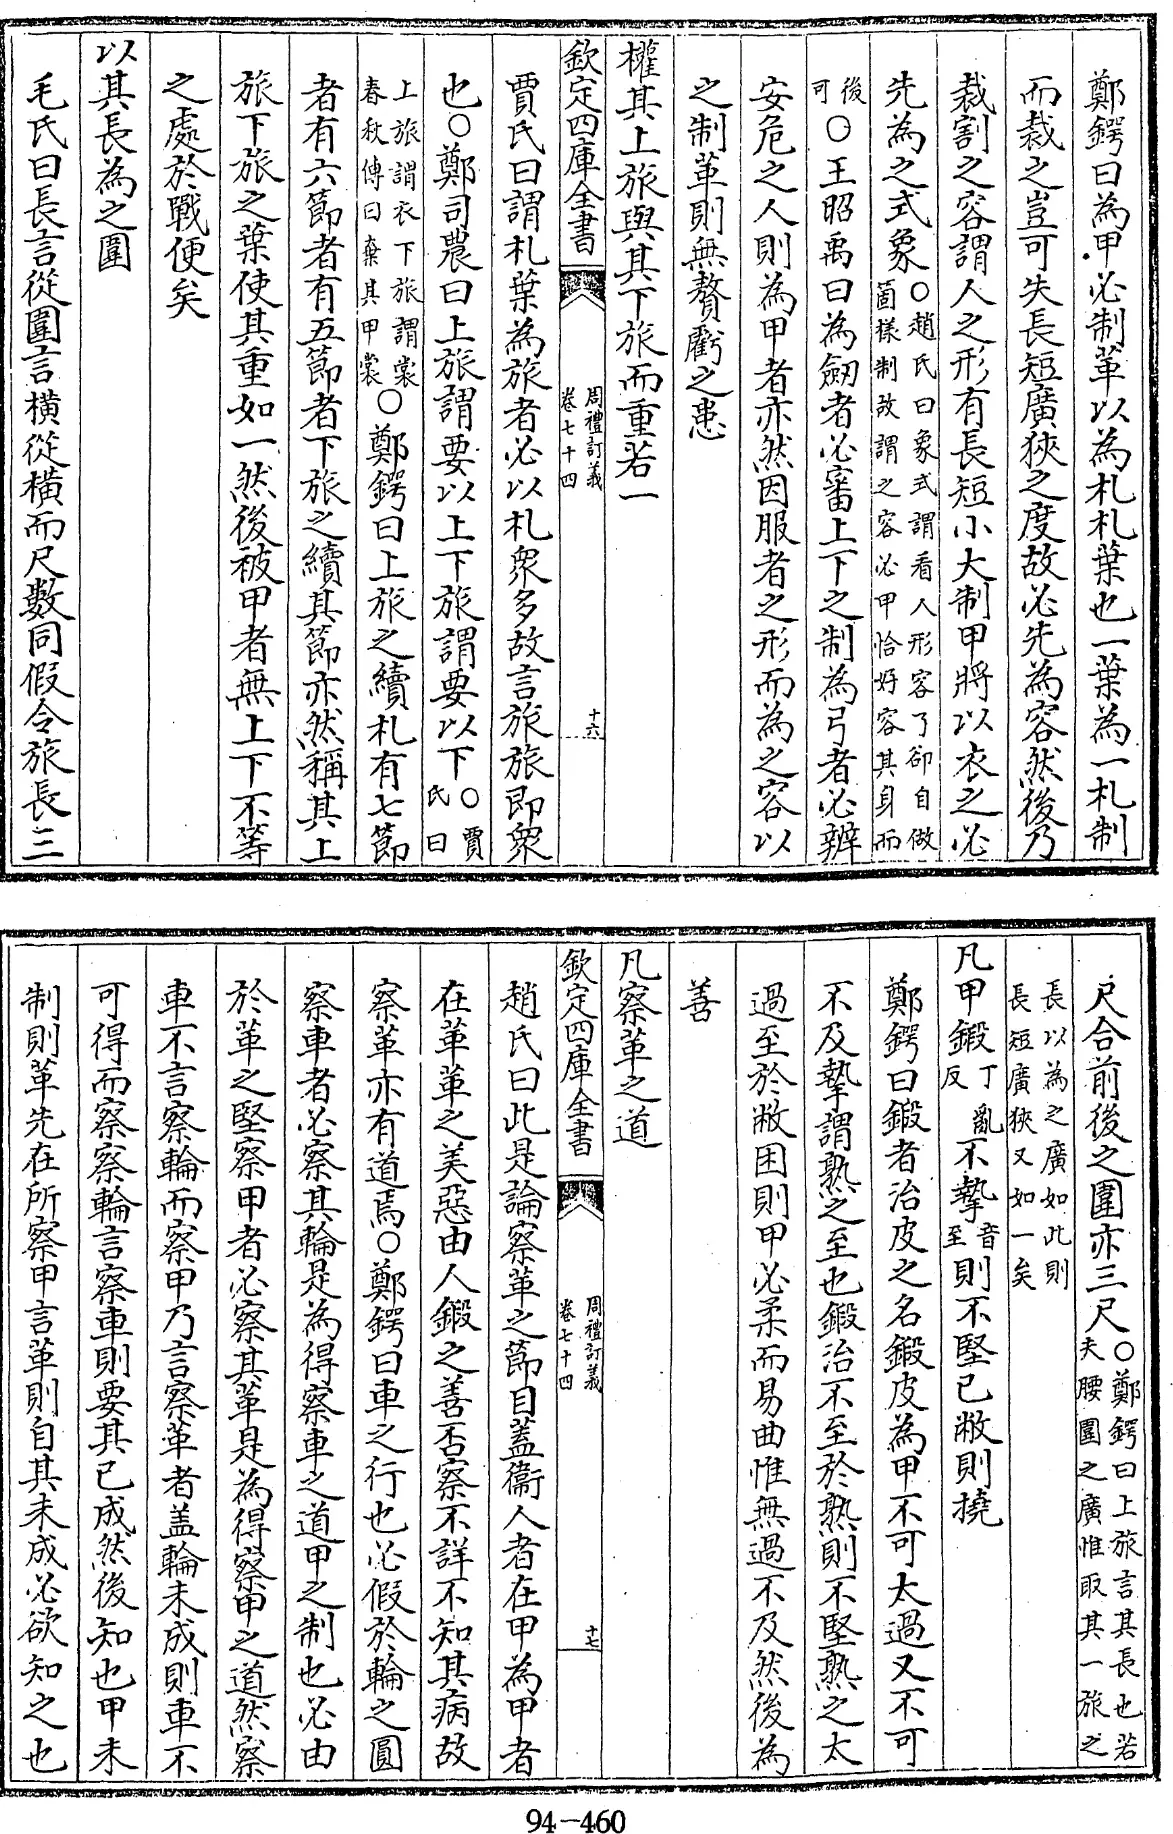 鄭鍔曰為甲必制革以為札札葉也一葉為一札制
而裁之豈可失長短廣狹之度故必先為容然後乃
裁割之容謂人之形有長短小大制甲將以衣之必
先為之式象○趙氏曰象式謂看人形容了卻自做
箇樣制故謂之容必甲恰好容其身而
後
可○王昭禹曰為劒者必審上下之制為弓者必辨
安危之人則為甲者亦然因服者之形而為之容以
之制革則無贅虧之患
權其上旅與其下旅而重若一
欽定四庫全書
周禮訂義
卷七十四
十六
賈氏曰謂札葉為旅者必以札衆多故言旅旅即衆
也○鄭司農曰上旅謂要以上下旅謂要以下○賈
氏曰
上旅謂衣下旅謂裳
春秋傳曰棄其甲裳○鄭鍔曰上旅之續札有七節
者有六節者有五節者下旅之續其節亦然稱其上
旅下旅之葉使其重如一然後被甲者無上下不等
之處於戰便矣
以其長為之圍
毛氏曰長言從圍言橫從橫而尺數同假令旅長三
尺合前後之圍亦三尺○鄭鍔曰上旅言其長也若
夫腰圍之廣惟取其一旅之
長以為之廣如此則
長短廣狹又如一矣
凡甲鍛丁亂
反不摯音
至則不堅已敝則撓
鄭鍔曰鍛者治皮之名鍛皮為甲不可太過又不可
不及摯謂熟之至也鍛治不至於熟則不堅熟之太
過至於敝困則甲必柔而易曲惟無過不及然後為
善
凡察革之道
欽定四庫全書
周禮訂義
卷七十四
十七
趙氏曰此是論察革之節目蓋衞人者在甲為甲者
在革革之美惡由人鍛之善否察不詳不知其病故
察革亦有道焉○鄭鍔曰車之行也必假於輪之圓
察車者必察其輪是為得察車之道甲之制也必由
於革之堅察甲者必察其革是為得察甲之道然察
車不言察輪而察甲乃言察革者盖輪未成則車不
可得而察察輪言察車則要其已成然後知也甲未
制則革先在所察甲言革則自其未成必欲知之也
94-460